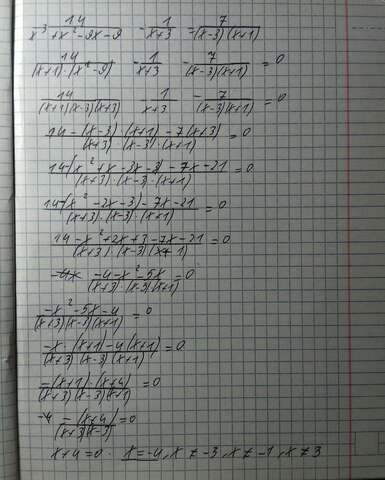 14/(x³+x²-9x-9) - 1/(x+3) = 7/((x-3)(x+1))
14/((x+1)·(x²-9)) - 1/(x+3) - 7/((x-3)(x+1)) = 0
14/((x+1)(x-3)(x+3)) - 1/(x+3) - 7/((x-3)(x+1)) = 0
(14-(x-3)·(x+1)-7(x+3))/((x+3)·(x-3)·(x+1)) = 0
(14-(x²+x-3x-3)-7x-21)/((x+3)·(x-3)·(x+1)) = 0
(14-(x²-2x-3)-7x-21)/((x+3)·(x-3)·(x+1)) = 0
(14-x²+2x+3-7x-21)/((x+3)·(x-3)·(x+1)) = 0
(-4-x²-5x)/((x+3)·(x-3)(x+1)) = 0
(-x²-5x-4)/((x+3)(x-3)(x+1)) = 0
(-x·(x+1)-4(x+1))/((x+3)(x-3)(x+1)) = 0
(-(x+1)·(x+4))/((x+3)(x-3)(x+1)) = 0
(-(x+4))/((x+3)(x-3)) = 0
x+4=0. x=-4, x≠-3, x≠-1, x≠3